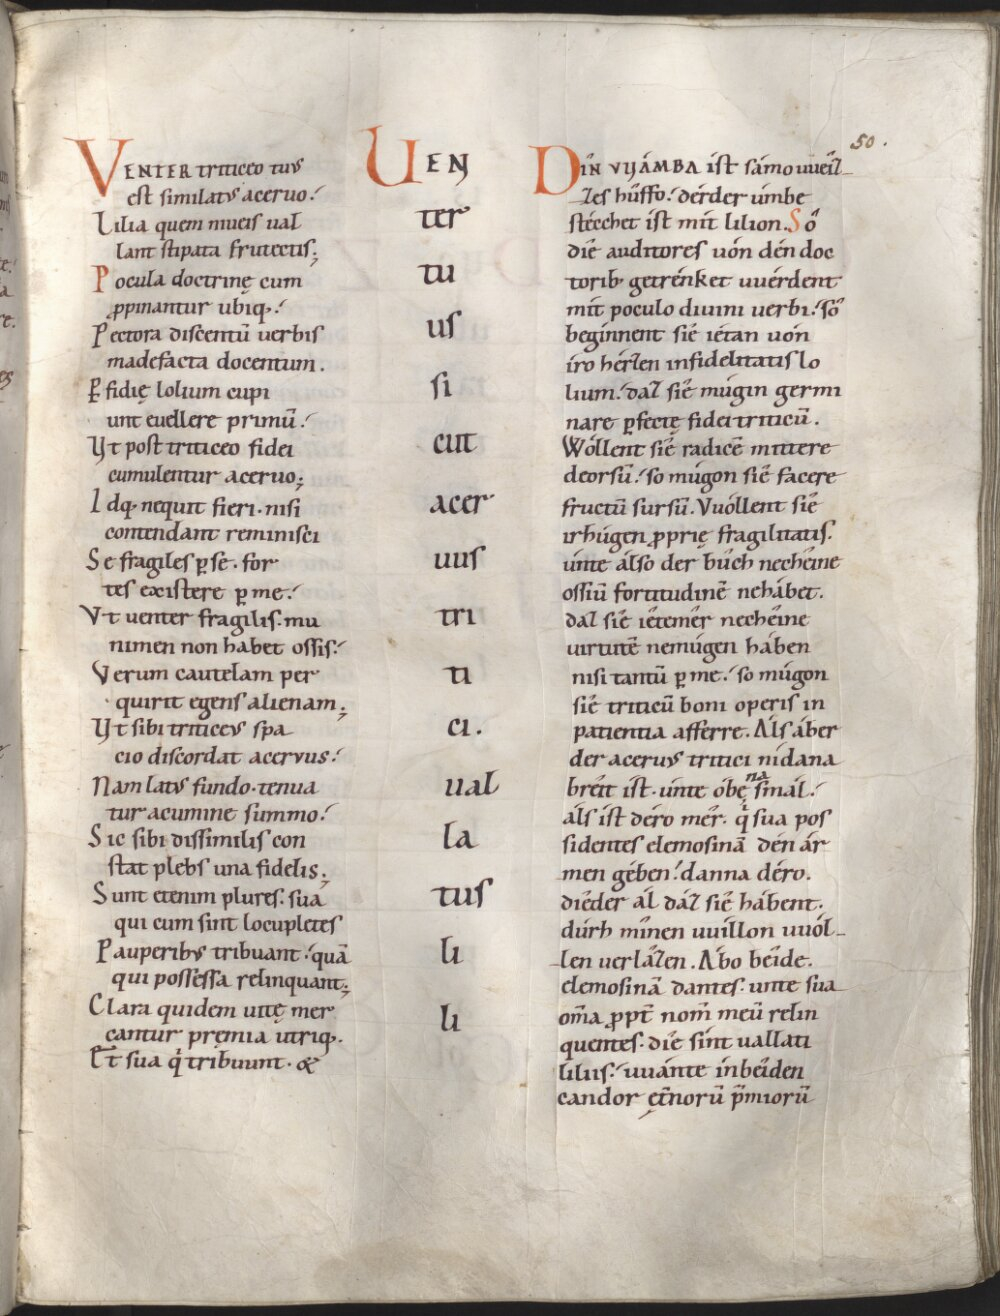 50.
VENTER triticeo tuus
est similatus aceruo.
Lilia quem niueis ual
lant stipata frutectis;
Pocula doctrinę cum
ꝓpinantur ubiqꝫ.
Pectora discentū uerbis
madefacta docentum.
Ꝑfidię lolium cupi
unt euellere primū.
Vt post triticeo fidei
cumulentur aceruo;
Idqꝫ nequit fieri. nisi
contendant reminisci
Se fragiles ꝑ se. for
tes existere ꝑ me.
Vt uenter fragilis. mu
nimen non habet ossis.
Verum cautelam per
quirit egens alienam;
Vt sibi triticeus spa
cio discordat aceruus.
Nam latus fundo. tenua
tur acumine summo.
Sic sibi dissimilis con
stat plebs una fidelis;
Sunt etenim plures. sua
qui cum sint locupletes
Pauperibus tribuant. quā
qui possessa relinquant;
Clara quidem uitę mer
cantur pręmia utriqꝫ.
Et sua q̇ tribuunt. &
UEN
ter
tu
us
si
cut
acer
uus
tri
ti
ci.
ual
la
tus
li
li
Dîn vvámba ist sámo uueiz
zes hûffo. dérder úmbe
stécchet ist mít lilion. Sô
díe auditores uón dén doc
torib getrénket uuérdent
mít poculo diuini uerbi. só
begínnent síe iétan uón
íro hérzen infidelitatis lo
lium. daz síe múgin germi
nare ꝑfectę fidei triticū.
Wóllent síe radicē mittere
deorsū. so múgon síe facere
fructū sursū. Vuóllent síe
irhúgen ꝓprię fragilitatis.
únte álso der bûch nechéine
ossiū fortitudinē nehábet.
daz síe iêtemêr nechéine
uirtutē nemúgen háben
nisi tantū ꝑ me. so múgon
síe triticū boni operis in
patientia afferre. Áls áber
der aceruus tritici nídana
bréit ist. únte óbęna smál.
áls ist déro mêr. q̇ sua pos
sidentes elemosinā dén ár
men gében. dánna déro.
díeder ál dáz síe hábent.
dúrh mînen uuillon uuól
len uerlâzen. Ábo béide.
elemosinā dantes. unte sua
om̄a ꝓpt̄ nom̄ meū relin
quentes. díe sínt uallati
liliis. uuánte inbéiden
candor ęt̄norū p̄miorū